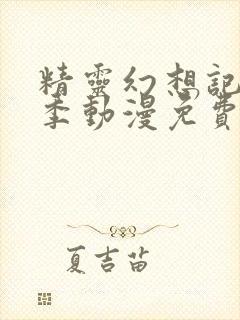 精靈幻想記
季動漫免費
夏吉苗